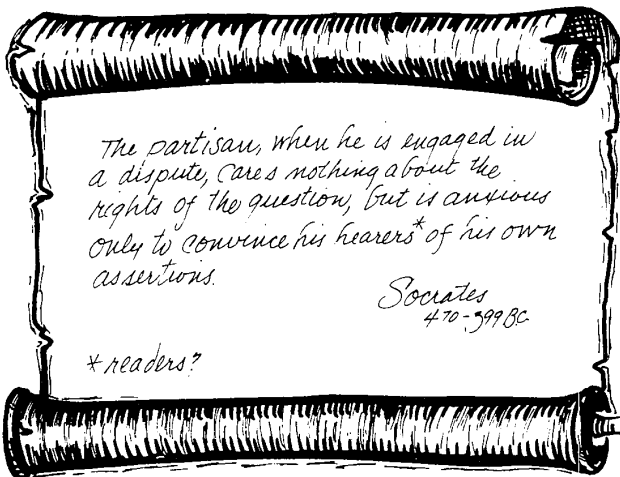 The partisan, when he is engaged in
a dispute, cares nothing about the
rights of the question, but is anxious
only to convince his hearers* of his own
assertions.
Socrates
470-399 BC
*readers?